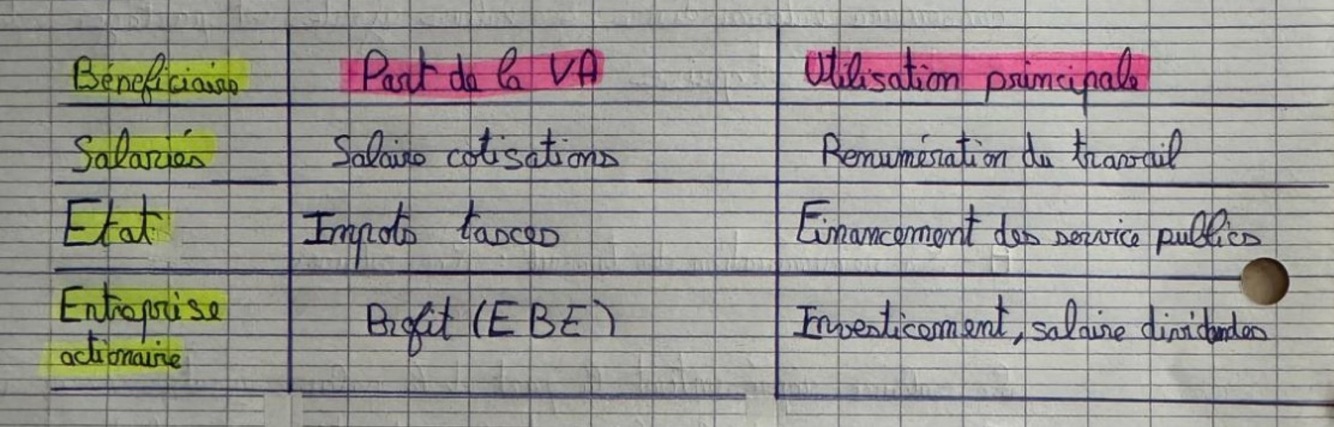 Béneficiaire Part de la VA Utilisation principale
Salariés Salaire cotisations Renumération du travail
Etat Impots taxes Financement des service publics
Entreprise Profit (EBE) Investicement, salaire dividendes
actionnaire